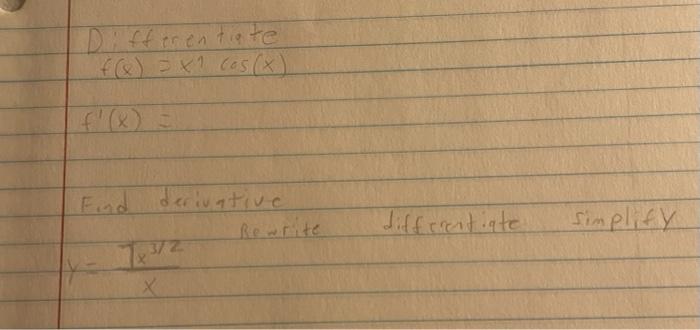 Differentiate
f(x) = x9 cos(x)
f'(x) =
Find derivative
Rewrite differentiate simplify
y = 7x^3/2 / x